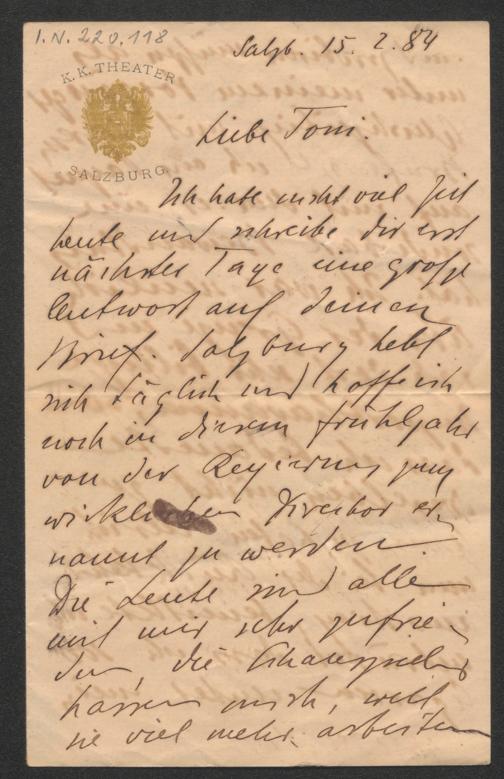 I.N. 220.118
Salzb. 15. 2. 84
K. K. THEATER
SALZBURG
Liebe Toni.
Ich habe nicht viel Zeit
heute und schreibe dir erst
nächster Tage eine große
Antwort auf deinen
Brief. Salzburg hebt
sich täglich und hoffe ich
noch in diesem Frühljahr
von der Regierung zum
wirklichen Director er-
nannt zu werden.
Die Leute sind alle
mit mir sehr zufrie-
den, die Schauspieler
hassen mich, weil
sie viel mehr arbeiten